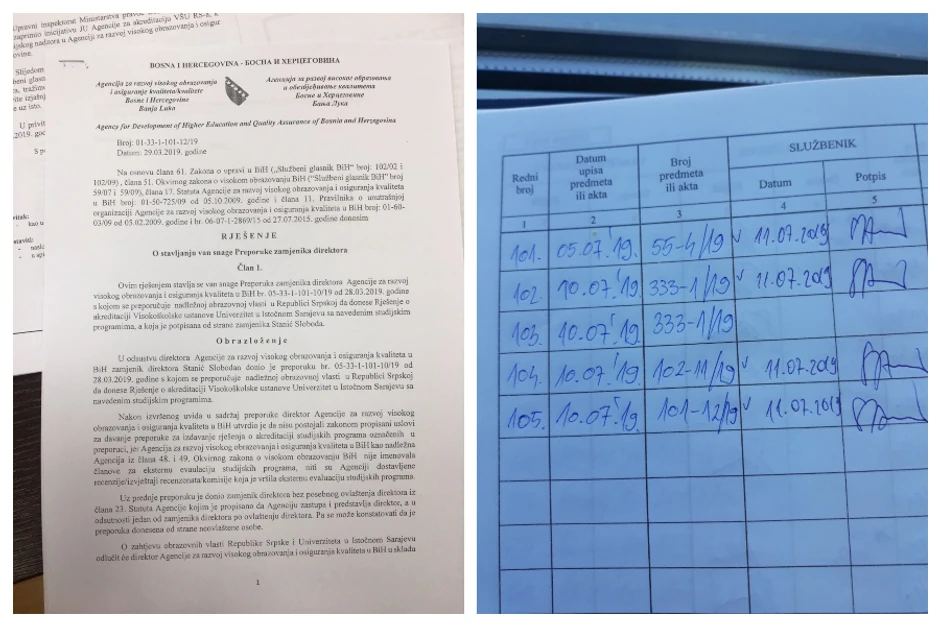 Upravni inspektorat Ministarstva
zaprimio inicijativu JU Agencije za akreditaciju VŠU RS-a,
nadzora u Agenciji za razvoj visokog obrazovanja i osigur
ovine.
Slijedom
U privit
2019. god
BOSNA I HERCEGOVINA - БОСНА И ХЕРЦЕГОВИНА
Agencija za razvoj visokog obrazovanja
i osiguranje kvaliteta/kvalitete
Bosne i Hercegovine
Banja Luka
Агенција за развој високог образовања
и обезбјеђивање квалитета
Босне и Херцеговине
Бања Лука
Agency for Development of Higher Education and Quality Assurance of Bosnia and Herzegovina
Broj: 01-33-1-101-12/19
Datum: 29.03.2019. godine
Na osnovu člana 61. Zakona o upravi u BiH („Službeni glasnik BiH“ broj: 102/02 i
102/09), člana 51. Okvirnog zakona o visokom obrazovanju BiH ("Službeni glasnik BiH" broj
59/07 i 59/09), člana 17. Statuta Agencije za razvoj visokog obrazovanja i osiguranja kvaliteta
u BiH broj: 01-50-725/09 od 05.10.2009. godine i člana 11. Pravilnika o unutrašnjoj
organizaciji Agencije za razvoj visokog obrazovanja i osiguranja kvaliteta u BiH broj: 01-60-
03/09 od 05.02.2009. godine i br. 06-07-1-2869/15 od 27.07.2015. godine donosim
R J E Š E N J E
O stavljanju van snage Preporuke zamjenika direktora
Član 1.
Ovim rješenjem stavlja se van snage Preporuka zamjenika direktora Agencije za razvoj
visokog obrazovanja i osiguranja kvaliteta u BiH br. 05-33-1-101-10/19 od 28.03.2019. godine
s kojom se preporučuje nadležnoj obrazovnoj vlasti u Republici Srpskoj da donese Rješenje o
akreditaciji Visokoškolske ustanove Univerzitet u Istočnom Sarajevu sa navedenim studijskim
programima, a koja je potpisana od strane zamjenika Stanić Sloboda.
O b r a z l o ž e nj e
U odsustvu direktora Agencije za razvoj visokog obrazovanja i osiguranja kvaliteta u
BiH zamjenik direktora Stanić Slobodan donio je preporuku br. 05-33-1-101-10/19 od
28.03.2019. godine s kojom se preporučuje nadležnoj obrazovnoj vlasti u Republici Srpskoj
da donese Rješenje o akreditaciji Visokoškolske ustanove Univerzitet u Istočnom Sarajevu sa
navedenim studijskim programima.
Nakon izvršenog uvida u sadržaj preporuke direktor Agencije za razvoj visokog
obrazovanja i osiguranja kvaliteta u BiH utvrdio je da nisu postojali zakonom propisani uslovi
za davanje preporuke za izdavanje rješenja o akreditaciji studijskih programa označenih u
preporuci, jer Agencija za razvoj visokog obrazovanja i osiguranja kvaliteta u BiH kao nadležna
Agencija iz člana 48. i 49. Okvirnog zakona o visokom obrazovanju BiH nije imenovala
članove za eksternu evaulaciju studijskih programa, niti su Agenciji dostavljene
recenzije/izvještaji recenzenata/komisije koja je vršila eksternu evaluaciju studijskih programa.
Uz prednje preporuku je donio zamjenik direktora bez posebnog ovlaštenja direktora iz
člana 23. Statuta Agencije kojim je propisana da Agenciju zastupa i predstavlja direktor, a u
odsutnosti jedan od zamjenika direktora po ovlaštenju direktora. Pa se može konstatovati da je
preporuka donesena od strane neovlaštene osobe.
O zahtjevu obrazovnih vlasti Republike Srpske i Univerziteta u Istočnom Sarajevu
odlučit će direktor Agencije za razvoj visokog obrazovanja i osiguranja kvaliteta u BiH u skladu
1
Redni broj
Datum upisa predmeta ili akta
Broj predmeta ili akta
SLUŽBENIK
Datum
Potpis
1 2 3 4 5
101. 05.07.'19. 55-4/19 11.07.2019
102. 10.07.'19. 333-1/19 11.07.2019
103. 10.07.'19. 333-1/19
104. 10.07.'19. 102-11/19 11.07.2019
105. 10.07.'19. 101-12/19 11.07.2019